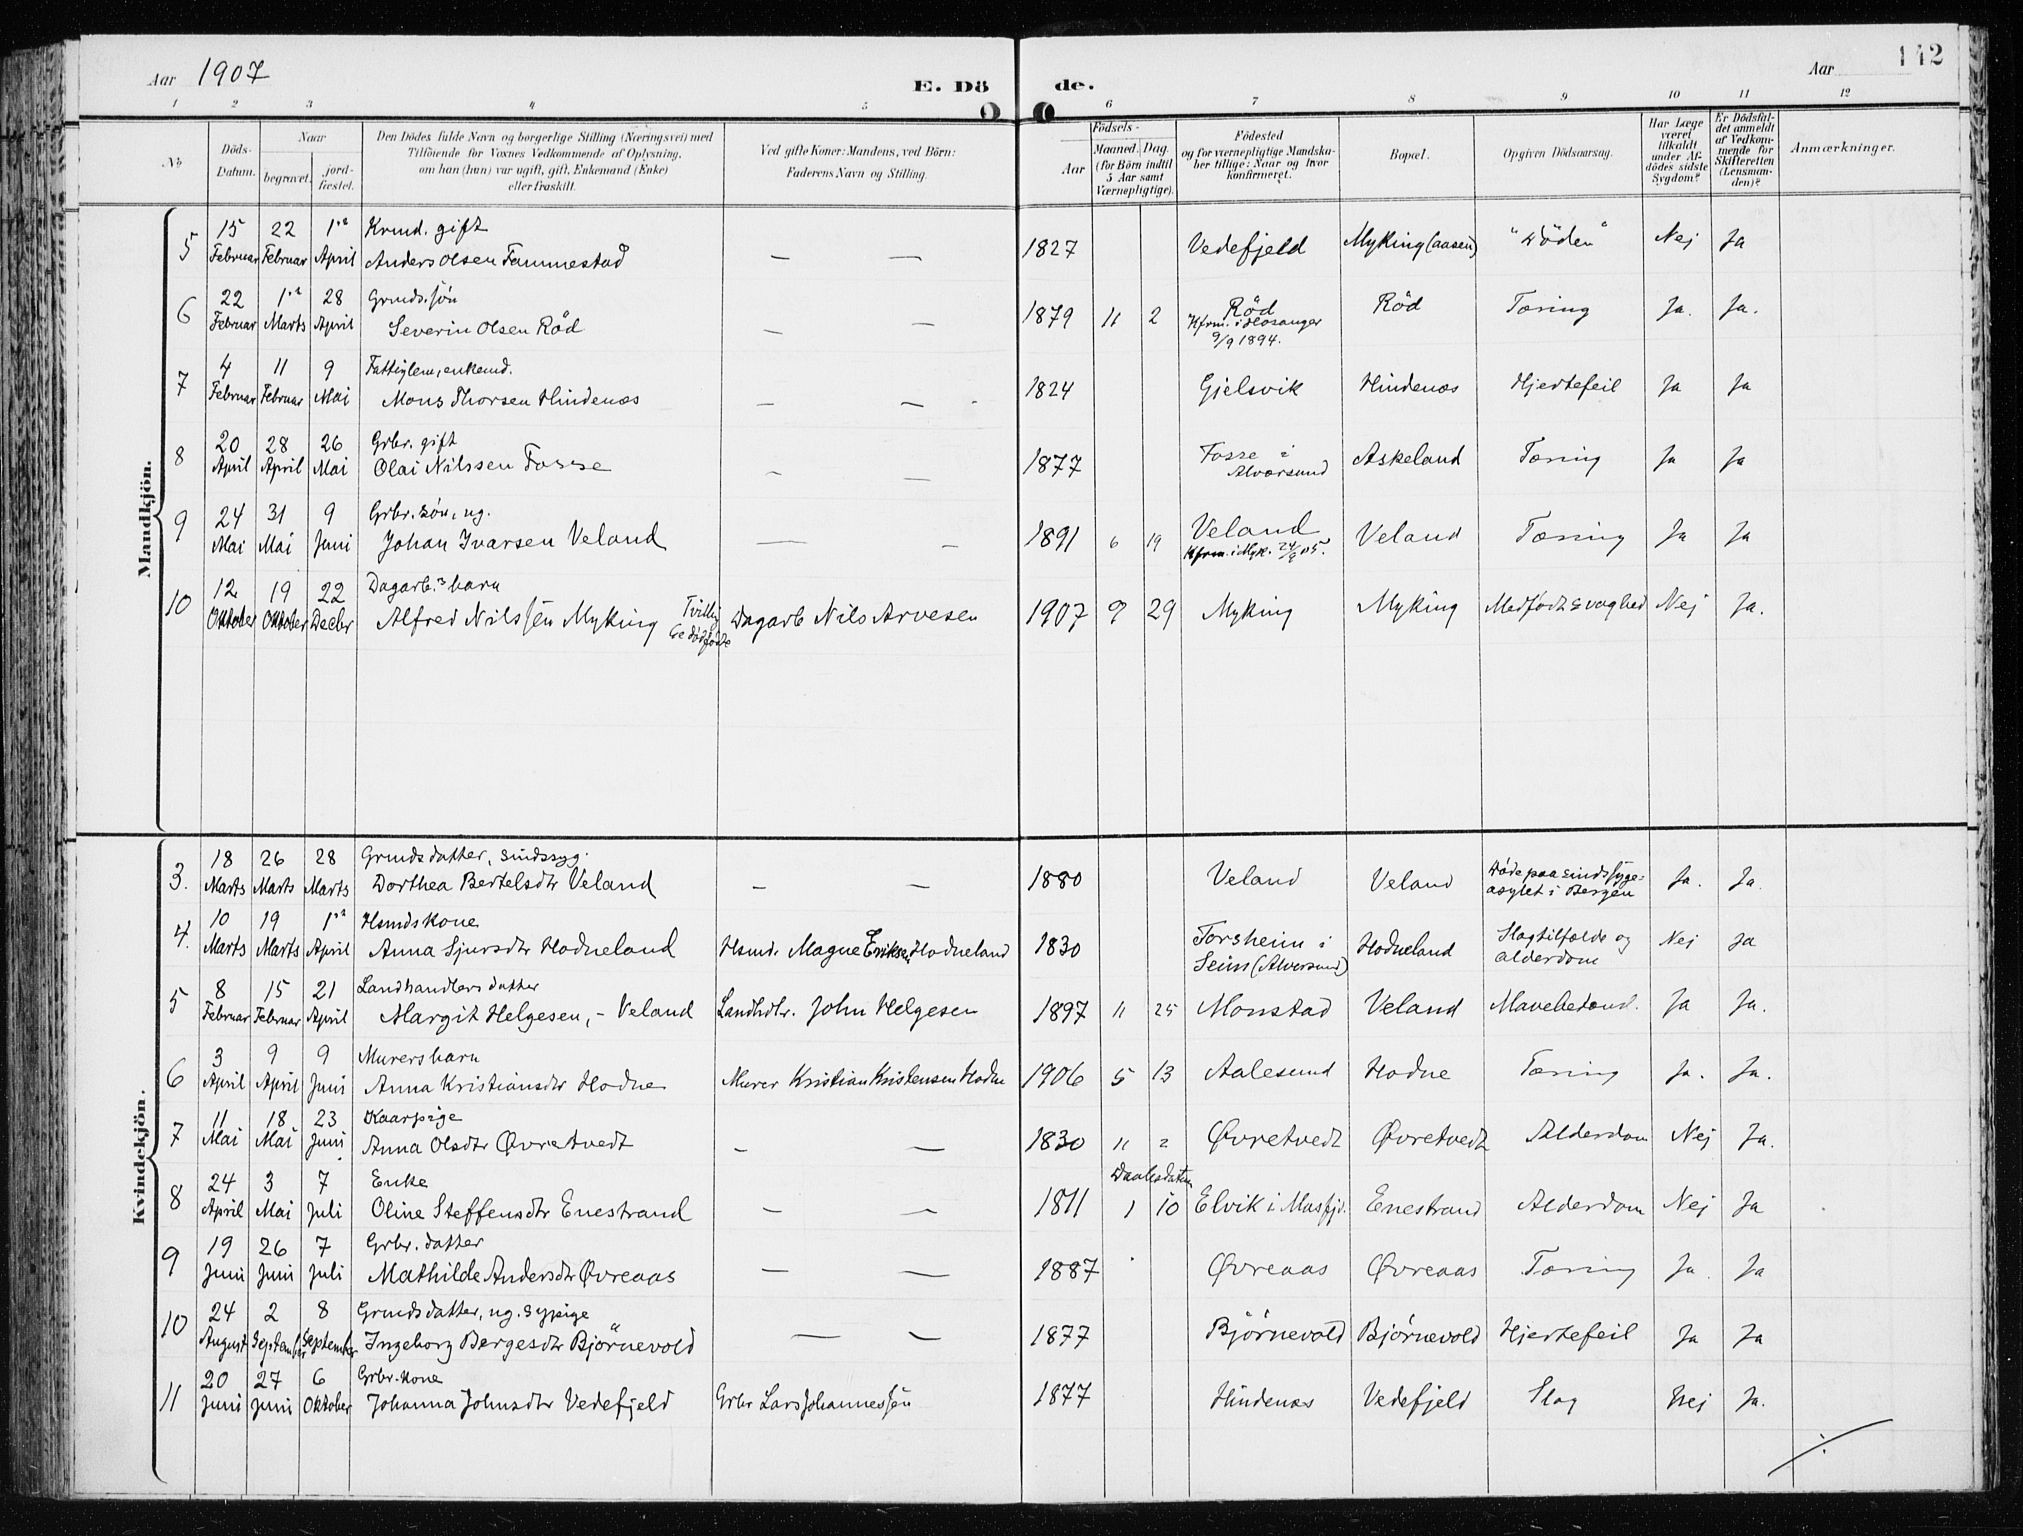 Aar 1907
E. Dö
de.
Aar
142
1 2 3 4 5 6 7 8 9 10 11 12
No
Döds-Datum.
Naar
begravet.
jord-fæstet.
Den Dödes fulde Navn og borgerlige Stilling (Næringsvei) med
Tilföiende for Voxnes Vedkommende af Oplysning,
om han (hun) var ugift, gift, Enkemand (Enke)
eller fraskilt.
Ved gifte Koner: Mandens, ved Börn:
Faderens Navn og Stilling.
Födsels-
Aar
Maaned. Dag.
(for Börn indtil
5 Aar samt
Værnepligtige).
Födested
og for værnepligtige Mandska-
ber tillige: Naar og hvor
konfirmeret.
Bopæl.
Opgiven Dödsaarsag.
Har Læge
været
tilkaldt
under Af-
dödes sidste
Sygdom?
Er Dödsfal-
det anmeldt
af Vedkom-
mende for
Skifteretten
(Lensman-
den)?
Anmærkninger.
Mandkjön.
15 22 1ste Krmd. gift
5 Februar Februar April Anders Olsen Fammestad — — 1827 Vedefjeld Myking (aasen) "Döden" Nej Ja
22 1ste 28 Grmds. søn
6 Februar Marts April Severin Olsen Röd — — 1879 11 2 Röd Röd Tæring Ja. Ja.
Kfrm. i Hosanger
9/9 1894.
4 11 9 Fattiglem, enkemd.
7 Februar Februar Mai Mons Thorsen Hindenæs — — 1824 Gjelsvik Hindenæs Hjertefeil Ja Ja
20 28 26 Grbr. gift
8 April April Mai Olai Nilssen Fosse — — 1877 Fosse i Alversund Askeland Tæring Ja Ja
24 31 9 Grbr. søn, ug.
9 Mai Mai Juni Johan Ivarsen Veland — — 1891 6 19 Veland Veland Tæring Ja Ja
Kfrm. i Myk. 24/9 05.
12 19 22 Dagarb.s barn
10 Oktober Oktober Decbr Alfred Nilssön Myking Tvillig Dagarb Nils Arvesen 1907 9 29 Myking Myking Medfødt svaghed Nej Ja.
Kvindekjön.
18 26 28 Grmds datter, sindssyg.
3. Marts Marts Marts Dorthea Bertelsdtr Veland — — 1880 Veland Veland Døde paa sindssyge-
asylet i Bergen Ja. Ja.
10 19 1ste Hsmds Kone
4. Marts Marts April Anna Sjursdtr Hodneland Hsmd. Magne Eriksen Hodneland 1830 Torsheim i
Seim (Alversund) Hodneland Slagtilfælde og
alderdom Nej Ja
8 15 21 Landhandlers datter
5 Februar Februar April Margit Helgesen, - Veland Landhdlr. John Helgesen 1897 11 25 Monstad Veland Mavebetænd. Ja Ja.
3 9 9 Murers barn
6 April April Juni Anna Kristiansdtr Hodne Murer Kristian Kristensen Hodne 1906 5 13 Aalesund Hodne Tæring Ja. Ja.
11 18 23 Kaarpige
7 Mai Mai Juni Anna Olsdtr Øvretvedt — — 1830 11 2 Øvretvedt Øvretvedt Alderdom Nej Ja.
Daabsdatum
24 3 7 Enke
8 April Mai Juli Oline Steffensdtr Enestrand — — 1811 1 10 Elvik i Masfjd. Enestrand Alderdom Nej Ja
19 26 7 Grbr. datter
9 Juni Juni Juli Mathilde Andersdtr Øvreaas — — 1887 Øvreaas Øvreaas Tæring Ja Ja
24 2 8 Grmds datter, ug. sypige
10 August September September Ingeborg Bergesdtr Björnevold — — 1877 Björnevold Bjørnevold Hjertefeil Ja Ja
20 27 6 Grbr. Kone
11 Juni Juni Oktober Johanna Johnsdtr Vedefjeld Grbr Lars Johannessön 1877 Hindenæs Vedefjeld Slag Nej Ja.